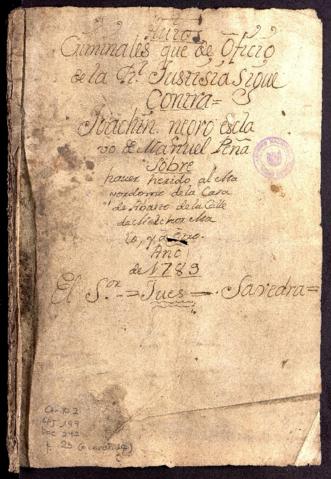 Autos
Criminales que de Oficio
de la Rl. Justisia Sigue
Contra=
Joachin negro escla
vo de Manuel Peña
Sobre
haver herido al Ma
yordomo de la Casa
de Abasto de la Calle
de Melchor Ma
to, y
Año
de 1783
El Sor. = Jues = Savedra=